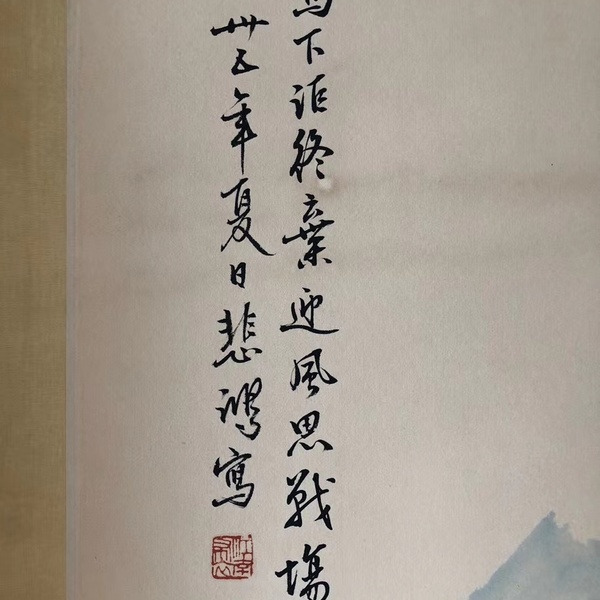 下詎終棄迎風思戰場
卅五年夏日悲鴻寫